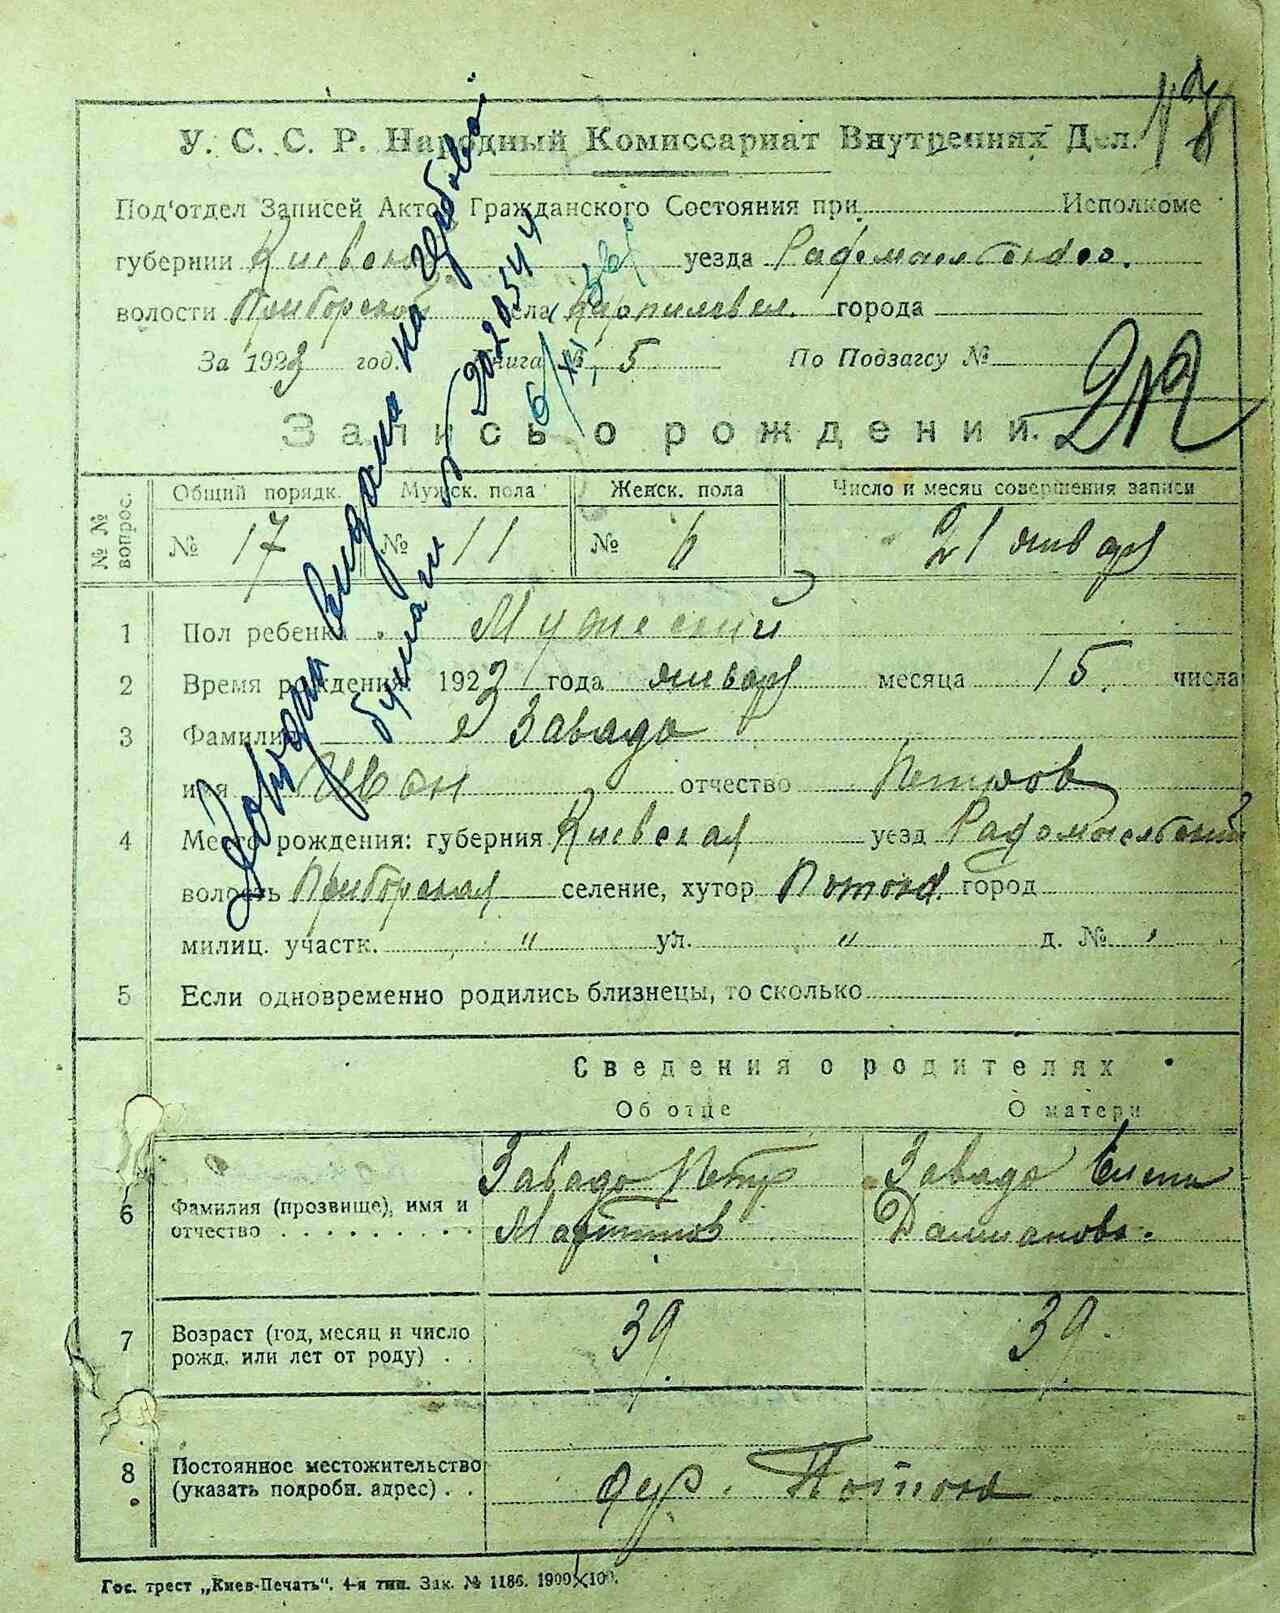 17
У. С. С. Р. Народный Комиссариат Внутренних Дел.
Под'отдел Записей Актов Гражданского Состояния при Исполкоме
губернии Киевской уезда Радомысльского.
волости Приборской села Карпиловки. города
За 1923 год. Книга № 5 По Подзагсу №
Запись о рождении. 212
№ № вопрос. Общий порядк. Мужск. пола Женск. пола Число и месяц совершения записи
№ 17 № 11 № 6 21 января
1 Пол ребенка Мужеский
2 Время рождения: 1923 года января месяца 15. числа
3 Фамилия Завадо
имя Иван отчество Петров
4 Место рождения: губерния Киевская уезд Радомысльский
волость Приборская селение, хутор город
милиц. участк. " ул. " д. № "
5 Если одновременно родились близнецы, то сколько
Сведения о родителях
Об отце О матери
6 Фамилия (прозвище), имя и отчество Завадо Петр Мартинов Завадо Елена
7 Возраст (год, месяц и число рожд. или лет от роду) . . 39 39.
8 Постоянное местожительство (указать подробн. адрес) . .
бумаги № 202054
Гос. трест „Киев-Печать". 4-я тип. Зак. № 1186. 1900×100.